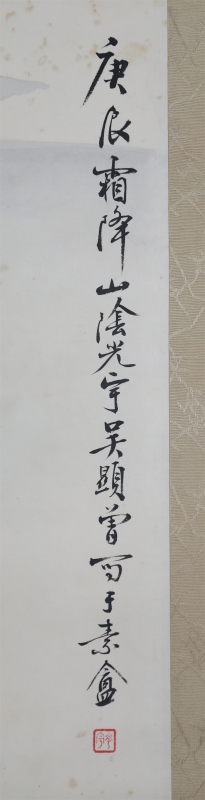 庚辰霜降山陰光宇吴顯曾写于素盦